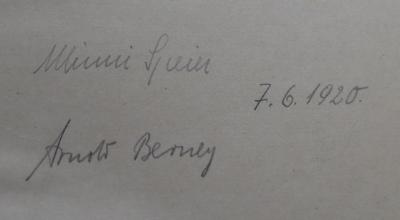 Minni Speier
7.6.1920.
Arnold Berney